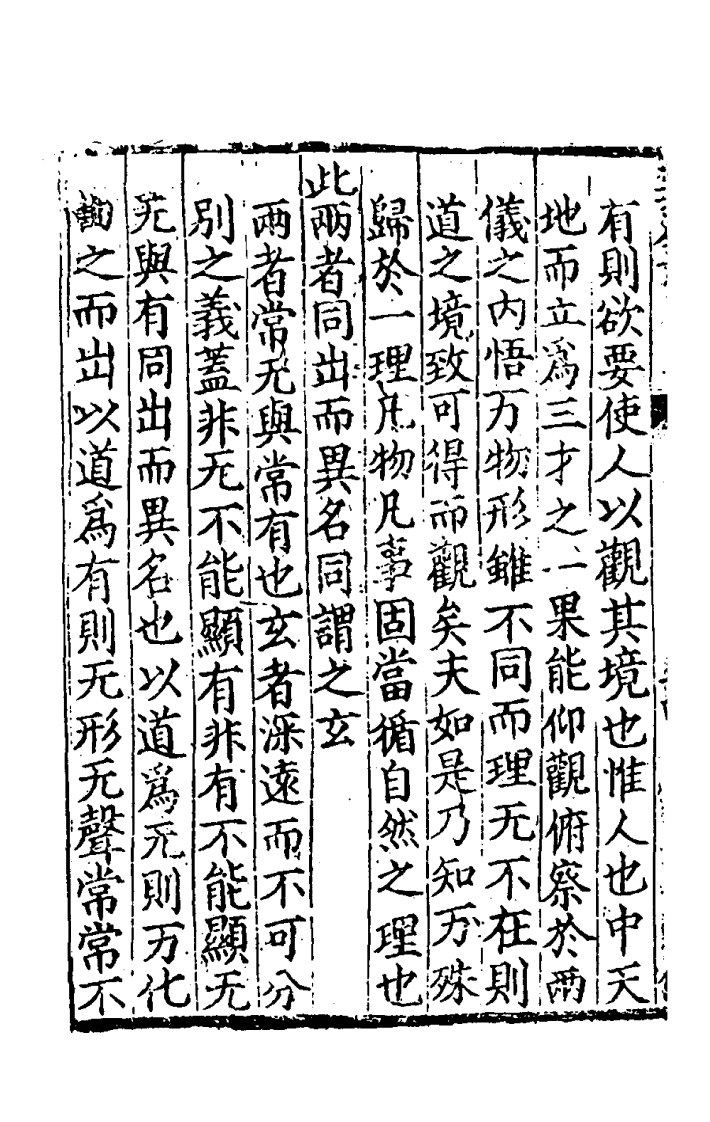 有則欲要使人以觀其境也惟人也中天
地而立爲三才之一果能仰觀俯察於兩
儀之内悟万物形雖不同而理无不在則
道之境致可得而觀矣夫如是乃知万殊
歸於一理凡物凡事固當循自然之理也
此兩者同出而異名同謂之玄
兩者常无與常有也玄者深遠而不可分
別之義蓋非无不能顯有非有不能顯无
无與有同出而異名也以道爲无則万化
之而出以道爲有則无形无聲常常不